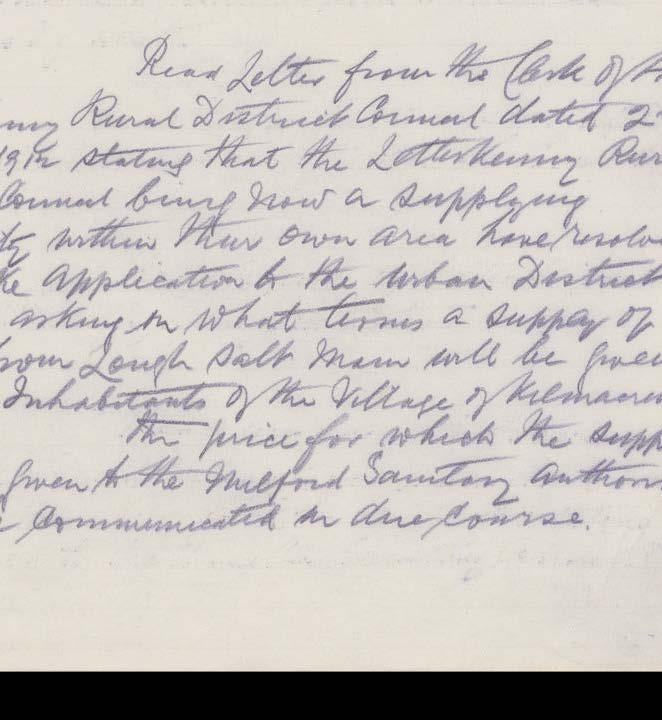 Read Letter from the Clerk of
Rural District Council dated 2
1912 stating that the Letterkenny Rur
Council being now a supplying
within their own area have resolv
ke application to the Urban District
asking on what terms a supply of
from Lough Salt Main will be given
Inhabitants of the Village of Kilmacren
the price for which the supp
given to the Milford Sanitary author
communicated in due course.